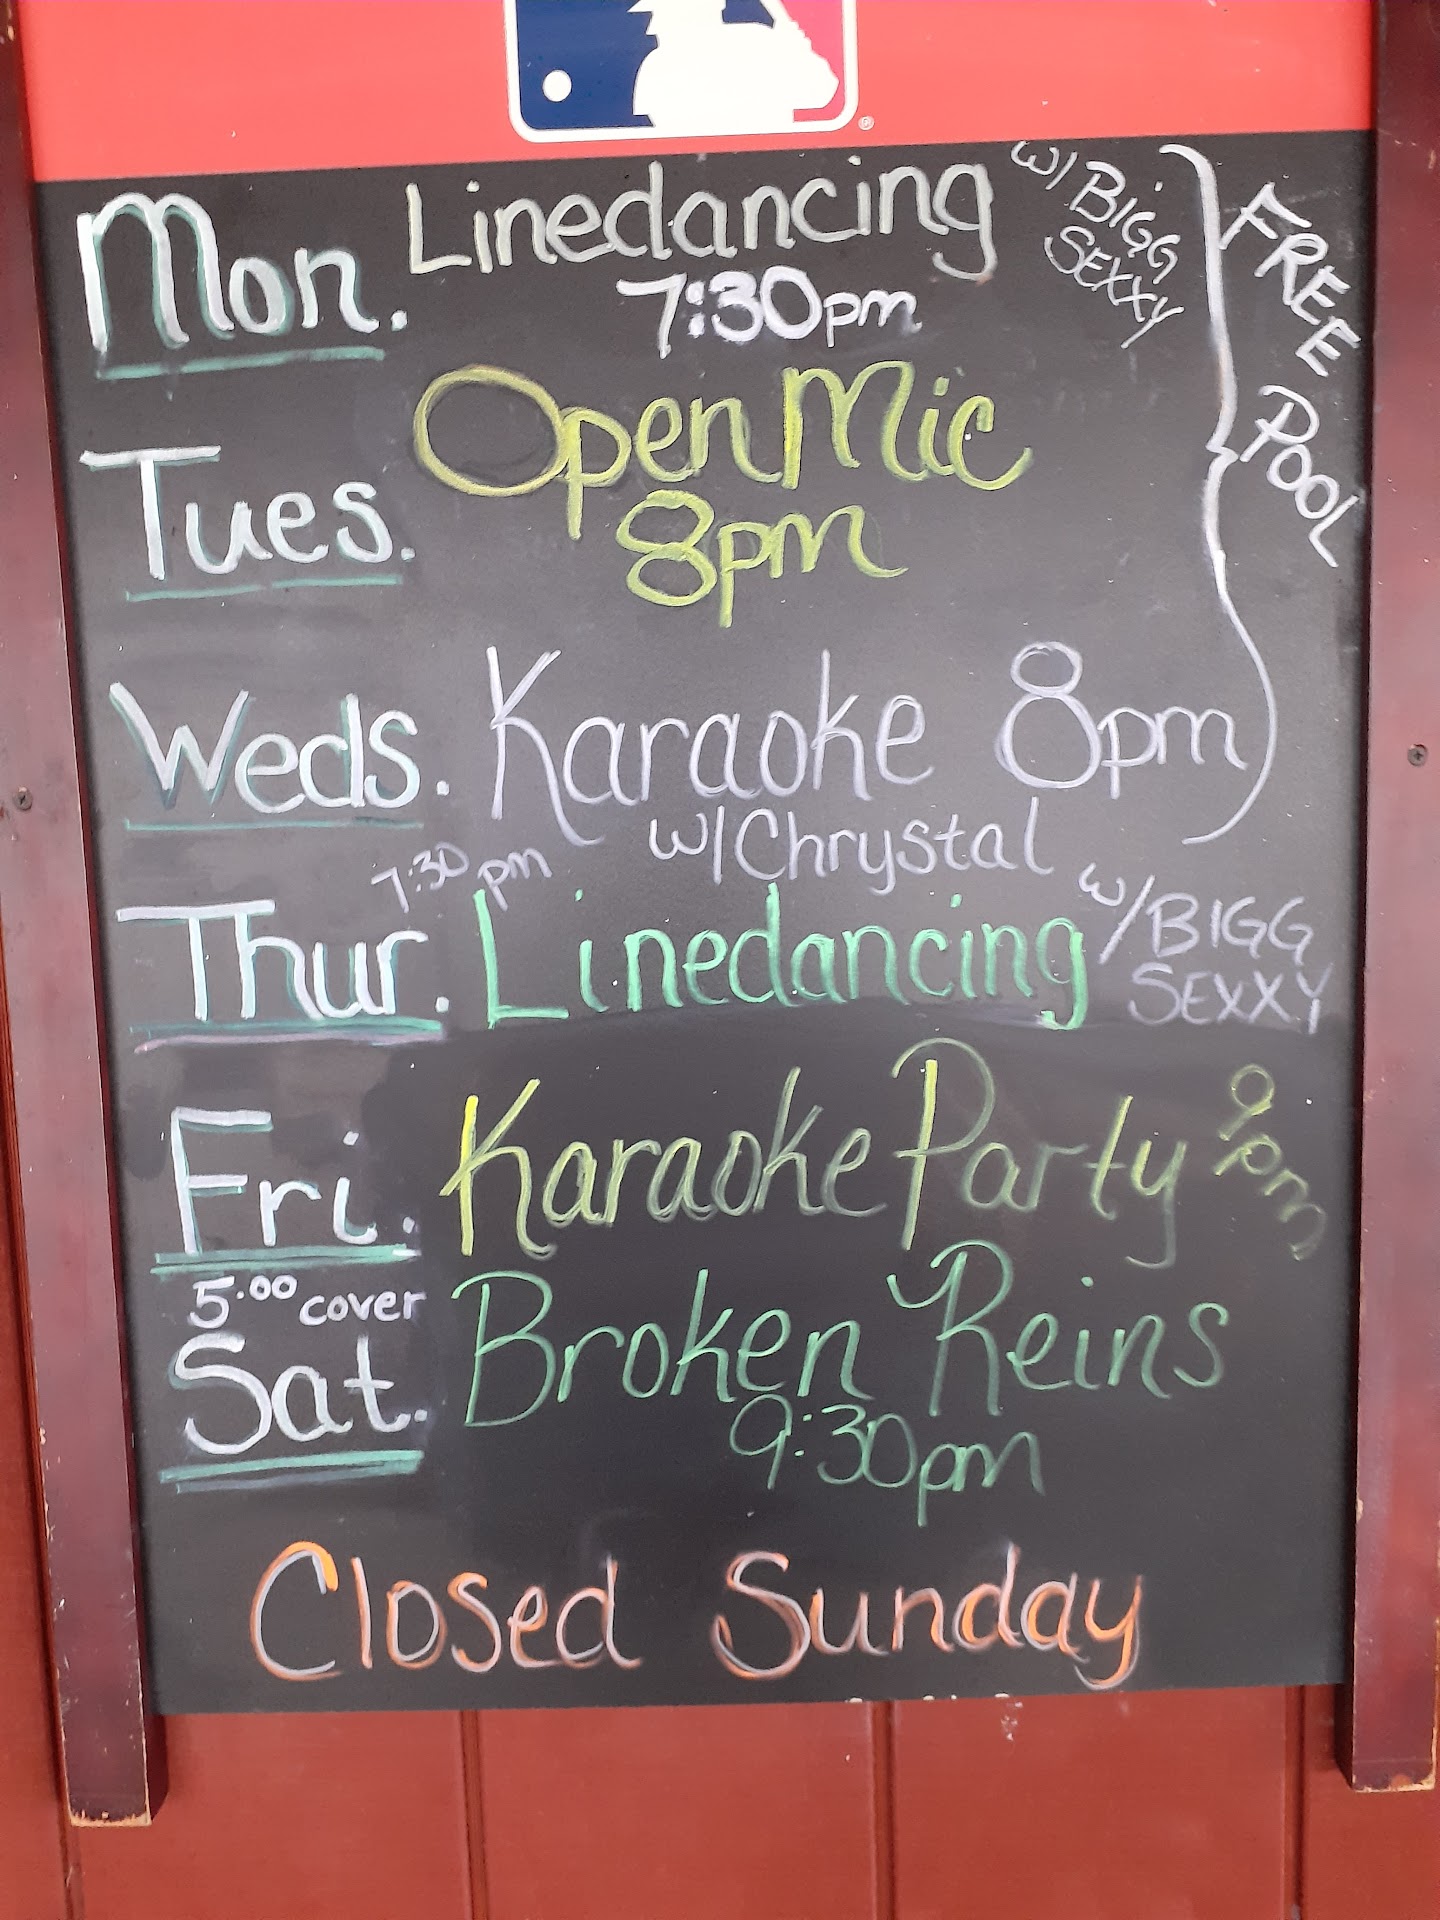 Mon. Linedancing w/ BIGG SEXXY
7:30pm
FREE POOL
Tues. Open Mic
8pm
Weds. Karaoke 8pm
w/ Chrystal
7:30pm
Thur. Linedancing w/ BIGG SEXXY
Fri. Karaoke Party 9pm
5.00 cover
Sat. Broken Reins
9:30pm
Closed Sunday